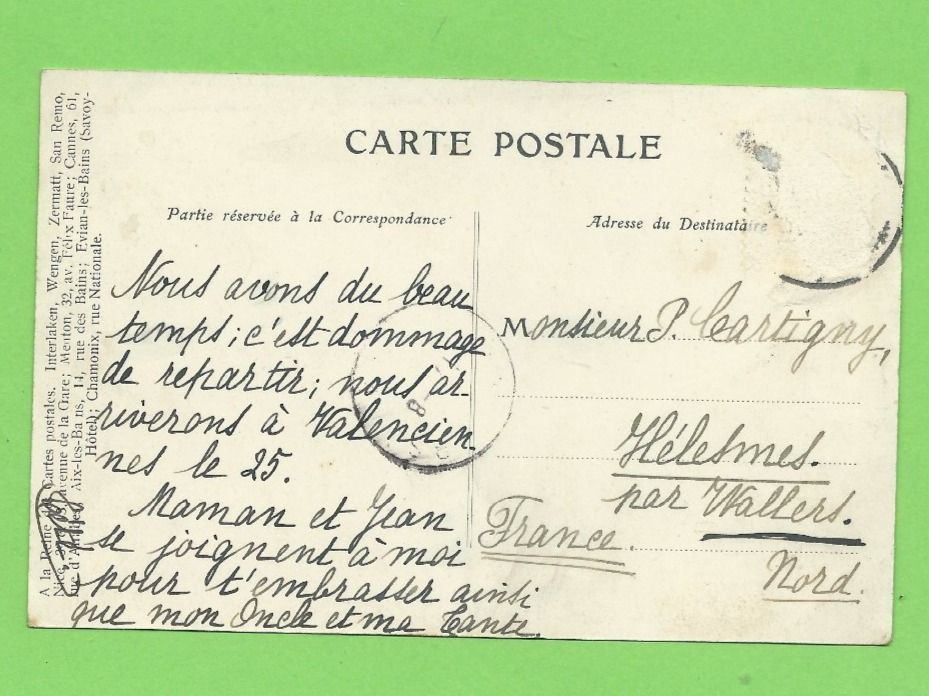 CARTE POSTALE
Partie réservée à la Correspondance
Adresse du Destinataire
Nous avons du beau
temps; c'est dommage
de repartir; nous ar-
riverons à Valencien-
nes le 25.
Maman et Jean
se joignent à moi
pour t'embrasser ainsi
que mon Oncle et ma Tante.
Monsieur P. Cartigny,
Hélesmes.
par Wallers.
France.
Nord.
A la Reine Cartes postales. Interlaken, Wengen, Zermatt, San Remo,
Nice, avenue de la Gare; Menton, 32, av. Félix Faure; Cannes, 61,
rue d'Antibes; Aix-les-Bains, 14, rue des Bains; Evian-les-Bains (Savoy-
Hôtel); Chamonix, rue Nationale.